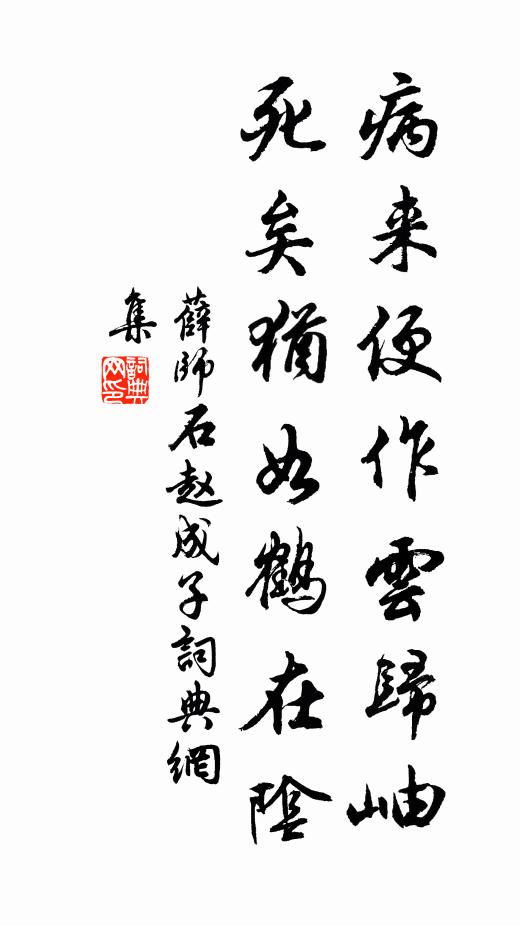 病来便作雲歸岫
死矣猶如鶴在陰
薛師石赵成子詞典網
集
詞典网印